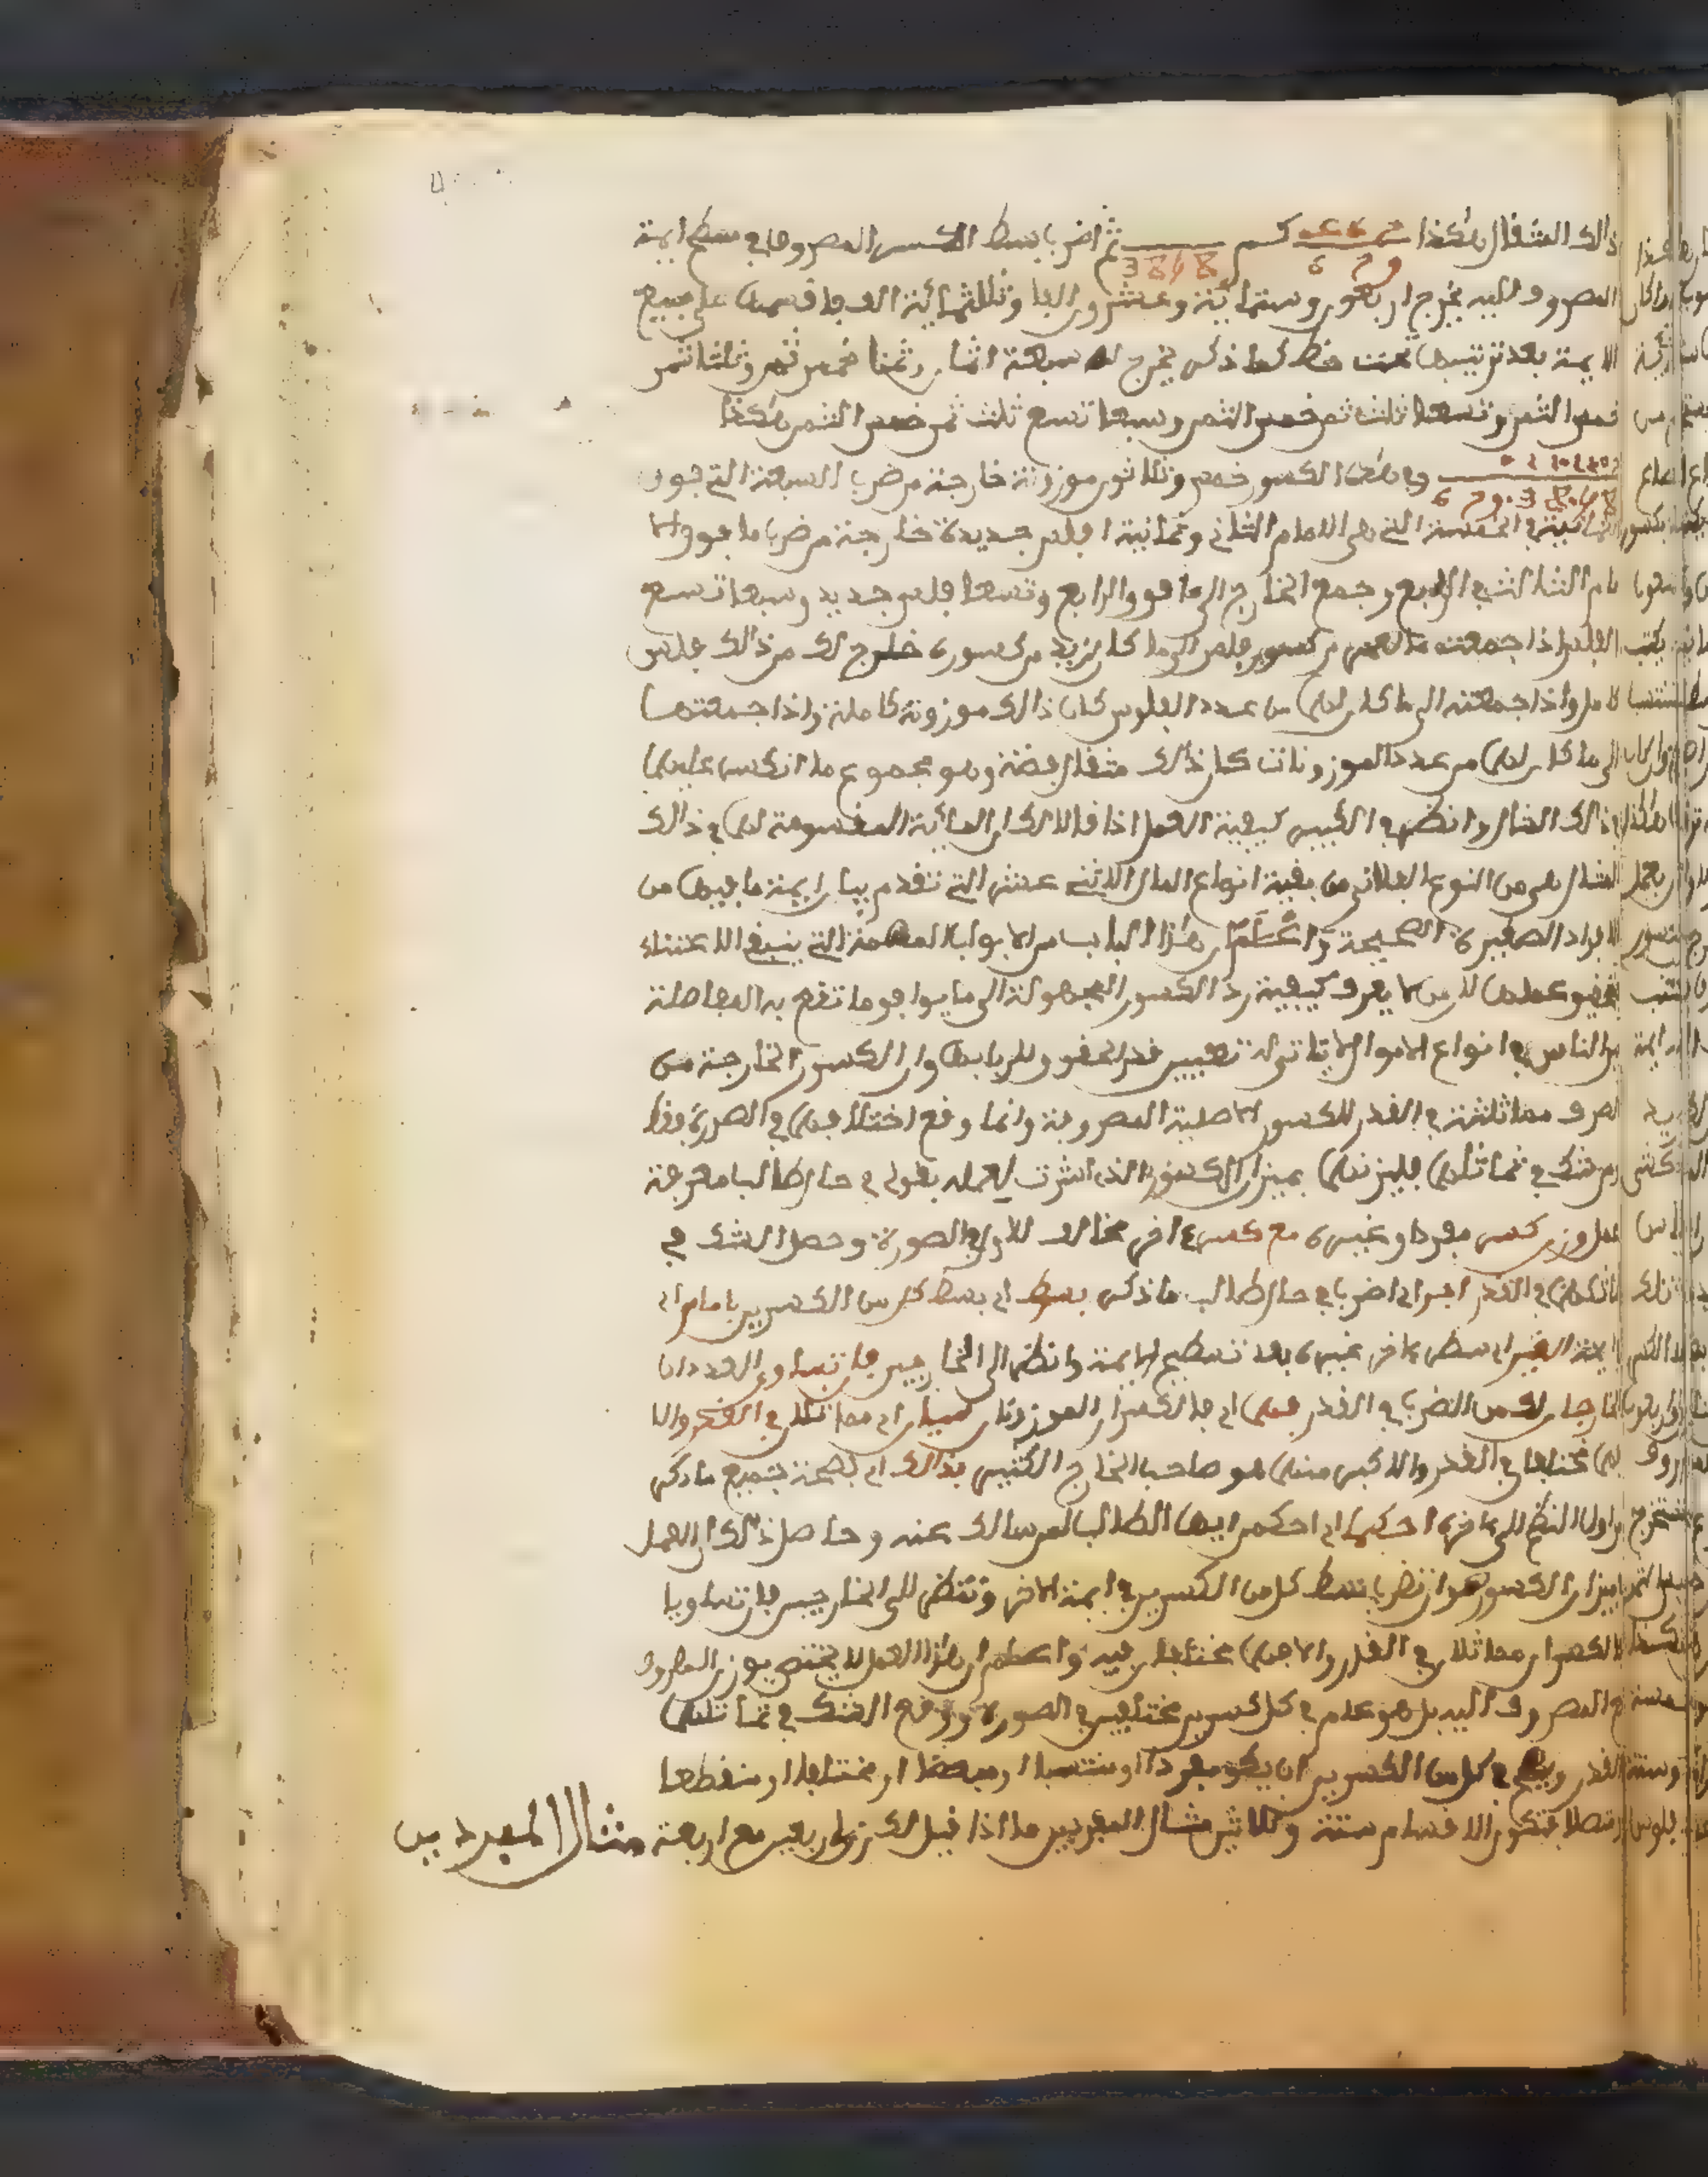 ذالك المثقال هكذا كسم ثم اضرب بسط الكسر المصروف في سطح ايمة
المصروف اليه يخرج اربعون وستمائة وعشرون الفا وثلاثمائة الف فاقسمها على جميع
الايمة بعد ترتيبها تحت خط كما ذكر يخرج لك سبعة اثمان وثمنا خمس ثمن وثلثا ثمن
خمس الثمن وتسعا ثلث ثمن خمس الثمن وسبعا تسع ثلث ثمن خمس الثمن هكذا
وفي هذا الكسور خمس وثلاثون موزونة خارجة من ضرب السبعة التي فوق
الثمانية في الخمسة التي هي الامام الثاني وثمانية افلس جديدة خارجة من ضرب ما فوق الا
مام الثالث في الرابع وجمع الخارج الى ما فوق الرابع وتسعا فلس جديد وسبعا تسع
الفلس اذا جمعته من كسور فلس الى ما كان لزيد من كسوره خرج لك من ذالك فلس
كامل واذا جمعته الى ما كان لهما من عدد الفلوس كان ذالك موزونة كاملة واذا جمعتها
الى ما كان لهما من عدد الموزونات كان ذلك مثقال فضة وهو مجموع ما انكسر عليهما
في ذالك المثال وانظر في الكبير كيفية العمل اذا قال لك ان المائة المقسومة لهما في ذالك
المثال هي من النوع الفلاني من بقية انواع المال الاثني عشر التي تقدم بيان ايمة ما فيها من
الافراد الصغيرة الصحيحة واعلم ان هذا الباب من الابواب المهمة التي ينبغي الاعتناء
بتحقيق عملها لان من لا يعرف كيفية رد الكسور المجهولة الى ما يوافق ما تقع به المعاملة
بين الناس في انواع الاموال لا يتاتى له تعيين قدر الحقوق لاربابها وان الكسور الخارجة من
الصرف مماثلة في القدر للكسور الاصلية المصروفة وانما وقع اختلافهما في الصورة فقط
ومن شك في تماثلهما فليزنهما بميزان الكسور الذي اشرت لعمله بقولي في حال طالب معرفة
عمل وزن كسر مفرد او غيره مع كسر اخر مخالف للاول في الصورة وحصل الشك في
تماثلهما في القدر اجر اي اضرب في حال طالب ما ذكر بسط اي بسط كل من الكسرين بامام اي
ايمة الغير اي سطح الاخر غيره بعد تسطيح الايمة وانظر الى الخارجين فان تساوى العددان
الخارجان لك من الضرب في القدر فهما اي فالكسران الموزونان سيان اي مماثلان في القدر والا
فهما مختلفا في القدر والاكبر منهما هو صاحب الخارج الكبير بذالك اي بصحة جميع ما ذكر
من اول النظم الى اخره احكما اي احكم ايها الطالب لمن سالك عنه وحاصل ذلك ان العمل
بميزان الكسور هو ان تضرب بسط كل من الكسرين في ايمة الاخر وتنظر الى الخارجين فان تساويا
فالكسران مماثلان في القدر والا فهما مختلفان فيه واعلم ان هذا العمل لا يختص بوزن المصروف
مع المصروف اليه بل هو عام في كل كسرين مختلفين في الصورة ووقع الشك في تماثلهما
في القدر ويصح في كل من الكسرين ان يكون مفردا او منتسبا او مبعضا او مختلفا او منقطعا
او متصلا فتكون الاقسام ستة وثلاثين مثال المفردين ما اذا قيل لك زن اربعين مع اربعة
مثال المفردين